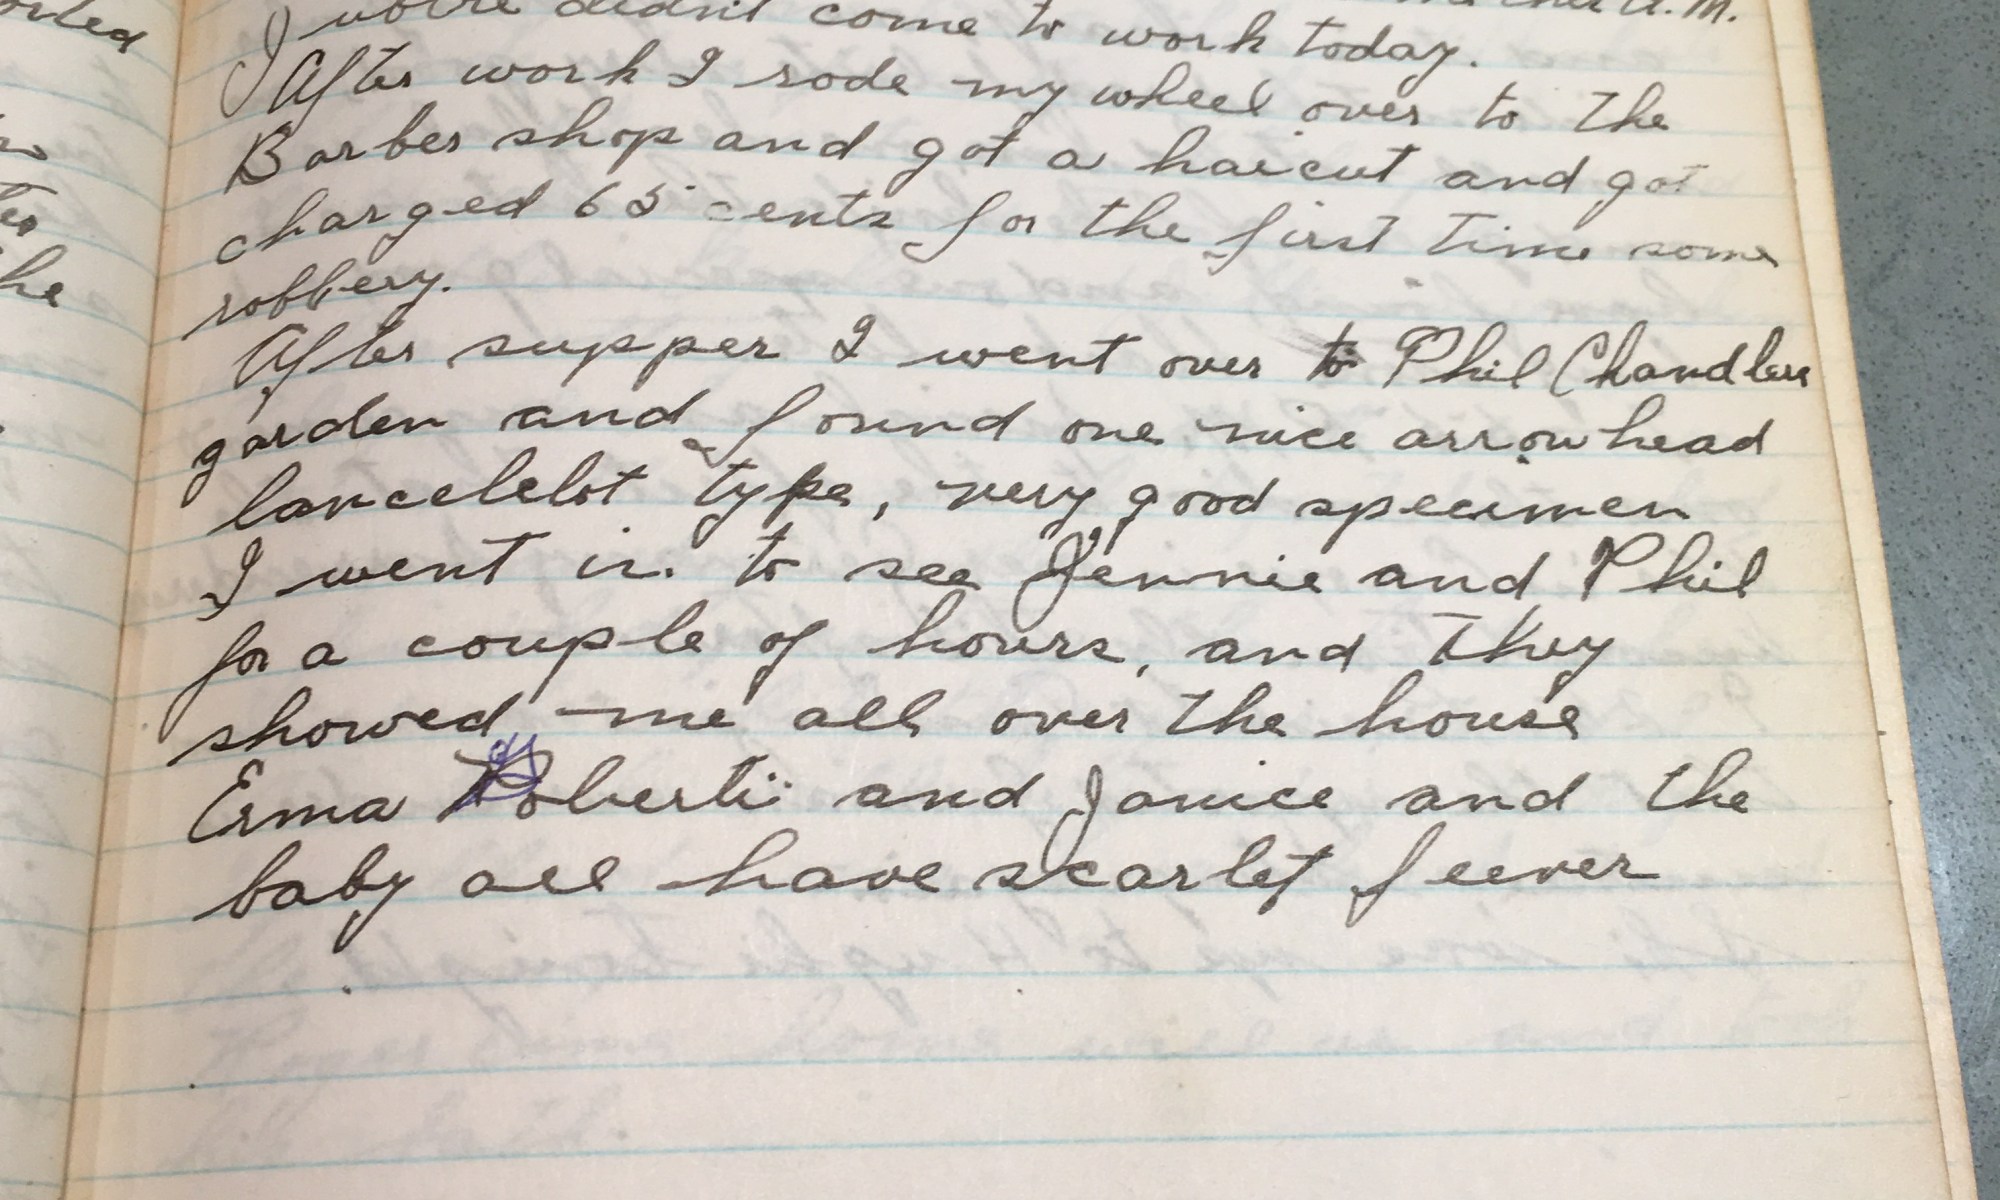 didn't come to work today.
After work I rode my wheel over to the
Barber shop and got a haircut and got
charged 65 cents for the first time some
robbery.
After supper I went over to Phil Chandlers
garden and found one nice arrowhead
lancelelot type, very good specimen
I went in to see Jennie and Phil
for a couple of hours, and they
showed me all over the house
Erma and Janice and the
baby all have scarlet feever